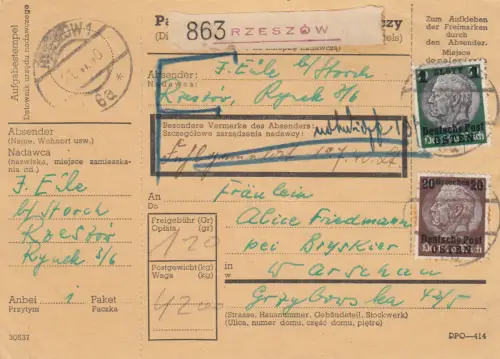 Aufgabestempel
Datownik urzędu nadawczego
RZESZÓW 1
Absender
(Name, Wohnort usw.)
Nadawca
(nazwiska, miejsce zamieszka-
nia itd.)
J. Eile
b/ Storch
Rzeszów
Rynek 3/6
Anbei 1 Paket
Przytym Paczka
30537
863 RZESZÓW
Absender:
Nadawca:
J. Eile b/ Storch
Rzeszów, Rynek 3/6
Besondere Vermerke des Absenders:
Szczegółowe zarządzenia nadawcy:
An
Do
Fräulein
Alice Friedmann
bei Bryskier
in
w
Warschau
Grzybowska 42/5
(Strasse, Hausnummer, Gebäudeteil, Stockwerk)
(Ulica, numer domu, część domu, piętro)
Freigebühr (Gr)
Opłata (gr)
120
Postgewicht (kg)
Waga (kg)
4200
Zum Aufkleben
der Freimarken
durch
den Absender.
Miejsce
1 1
Deutsche Post
OSTEN
20 Groschen 20
Deutsche Post
OSTEN
DPO-414